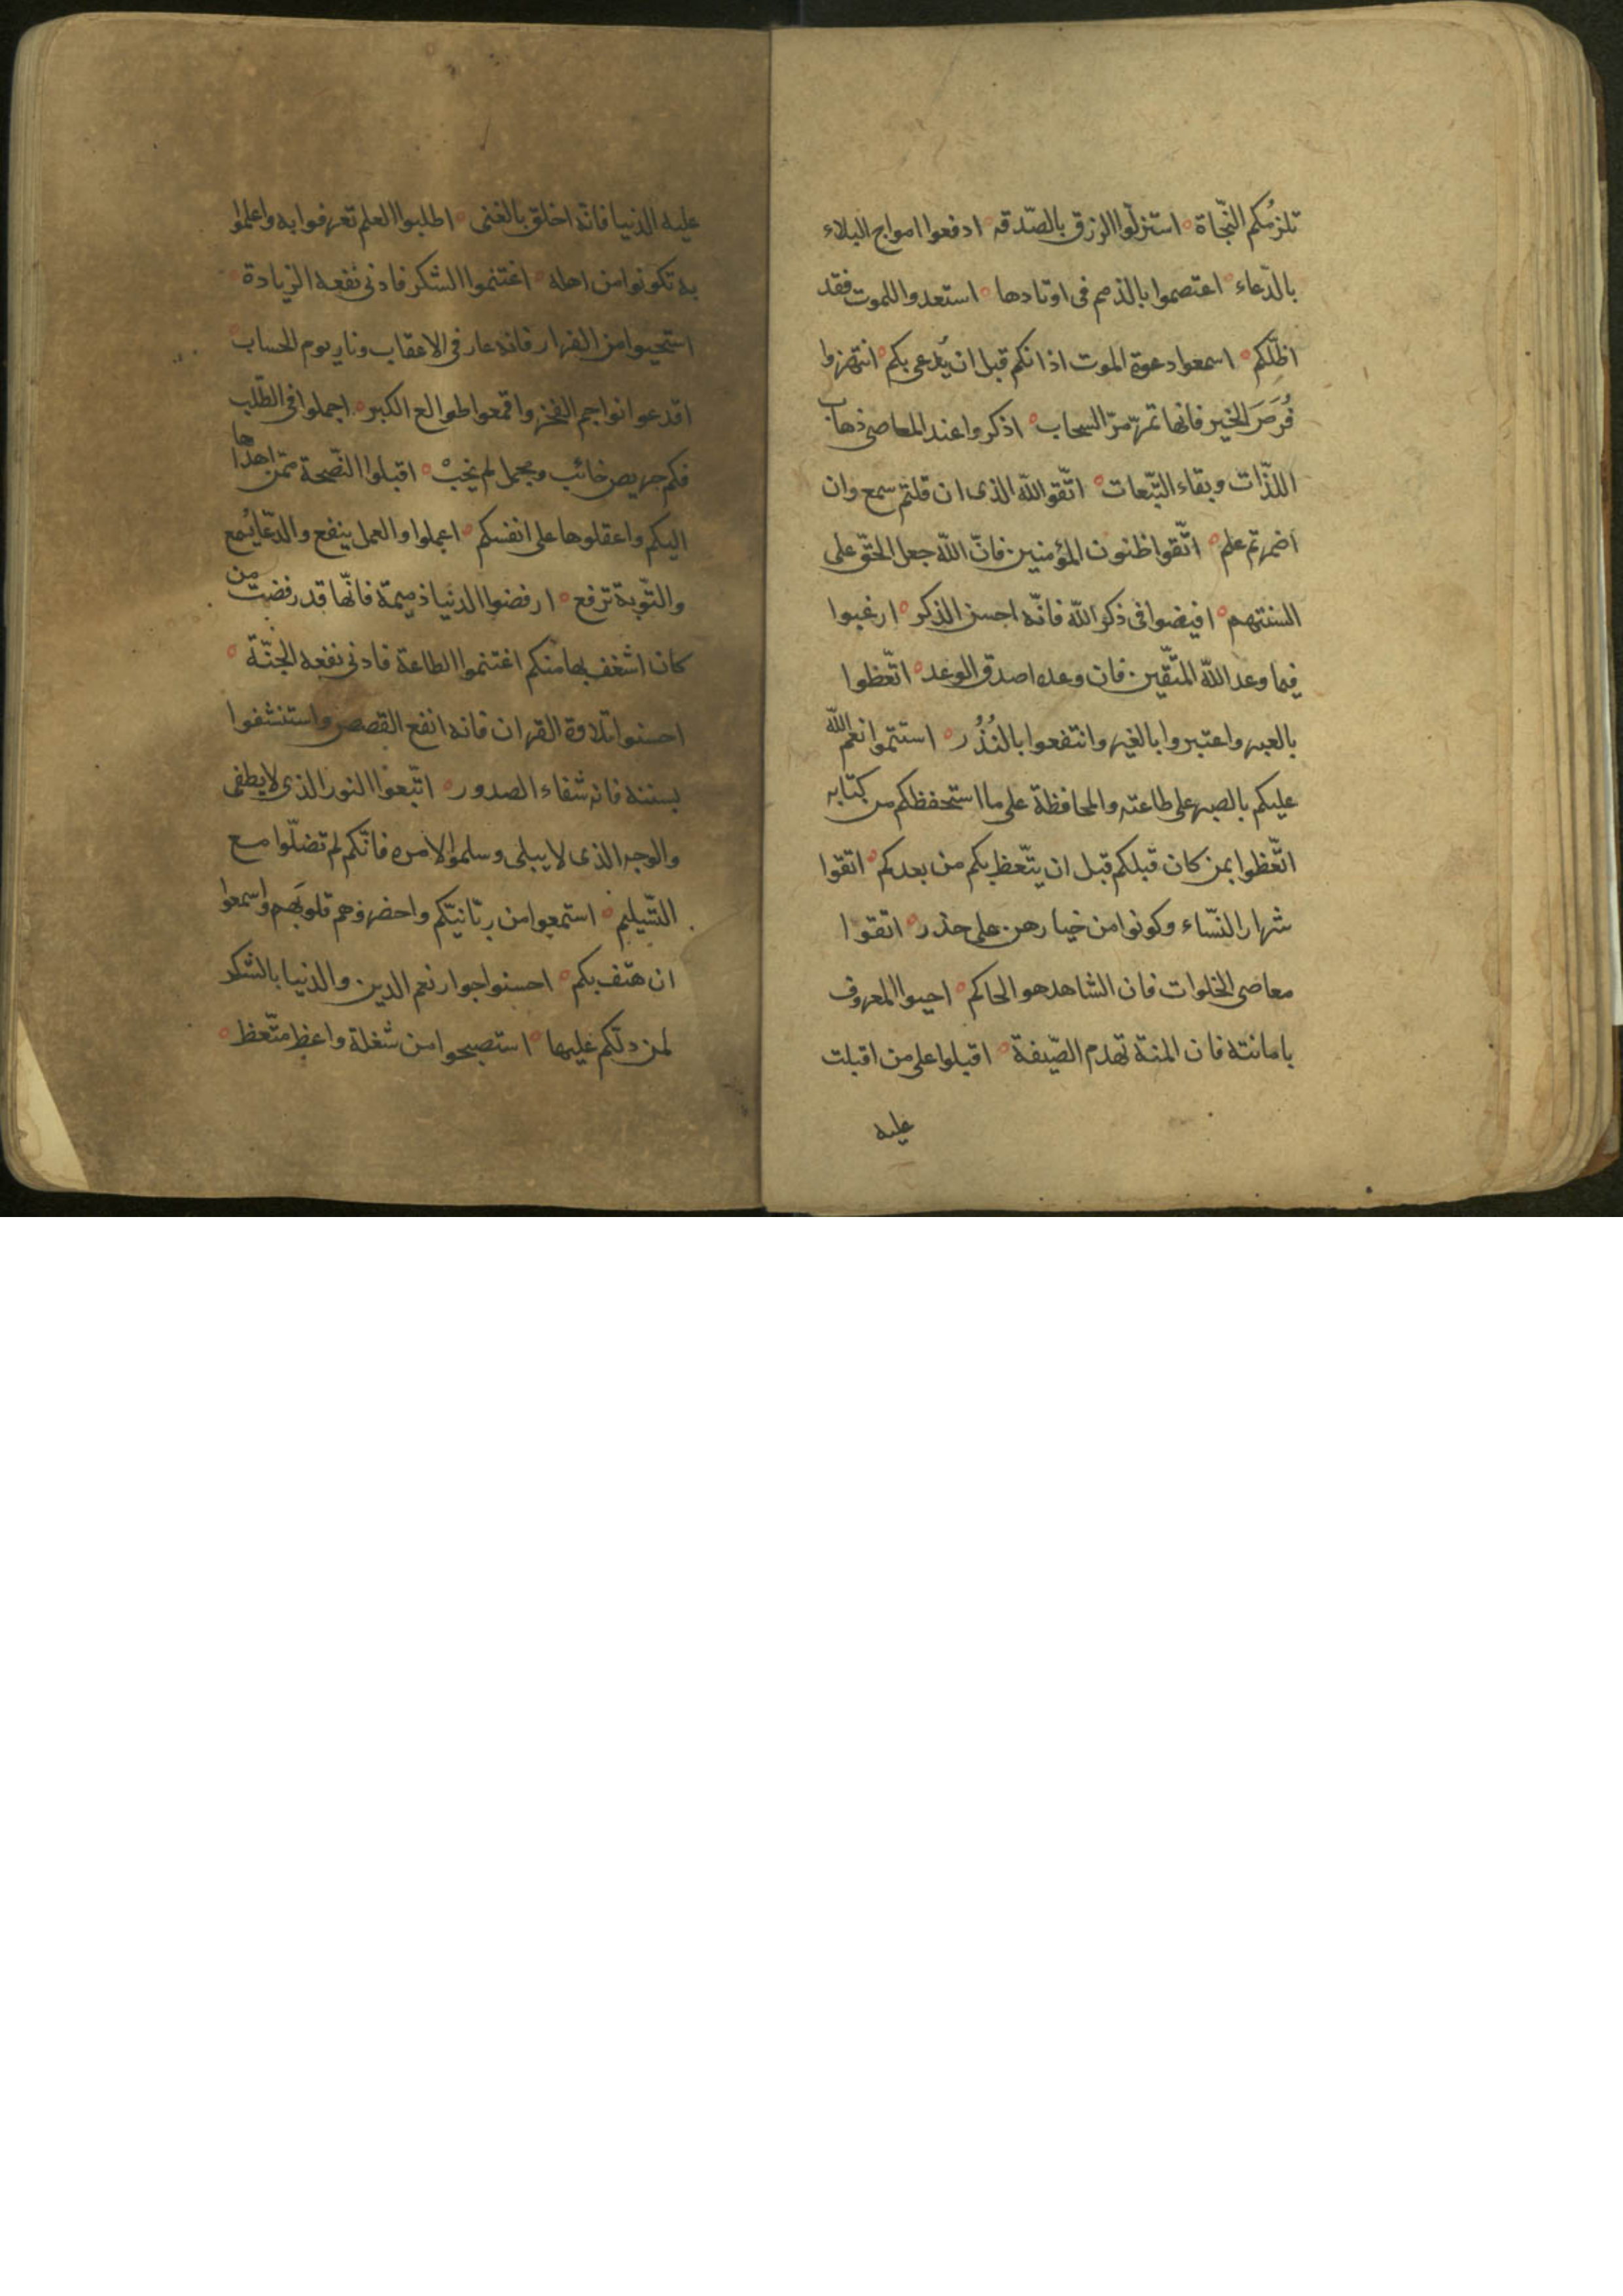 تلزمُكم النّجاة ه استنزلوا الرزق بالصّدقه ه ادفعوا امواج البلاء
بالدّعاء ه اعتصموا بالذمم فى اوتادها ه استعدوا للموت فقد
اظلّكم ه اسمعوا دعوة الموت اذانكم قبل ان يُدعى بكم ه انتهزوا
فُرَصَ الخير فانها تمرّ مرّ السحاب ه اذكروا عند المعاصى ذهاب
اللذّات وبقاء التّبعات ه اتّقوا اللّه الذى ان قلتم سمع وان
اضمرتم علم ه اتّقوا ظنون المؤمنين فانّ اللّه جعل الحقّ على
السنتهم ه افيضوا فى ذكر اللّه فانّه احسن الذكر ه ارغبوا
فيما وعد اللّه المتّقين فان وعده اصدق الوعد ه اتّعظوا
بالعبر واعتبروا بالغير وانتفعوا بالنُذُر ه استتموا نعم اللّه
عليكم بالصبر على طاعته والمحافظة على ما استحفظكم من كتابه
اتّعظوا بمن كان قبلكم قبل ان يتّعظ بكم من بعدكم ه اتقوا
شرار النّساء وكونوا من خيارهن على حذر ه اتقوا
معاصى الخلوات فان الشاهد هو الحاكم ه احيوا المعروف
بامانته فان المنة تهدم الصّيفة ه اقبلوا على من اقبلت
عليه
عليه الدنيا فانّه اخلق بالغنى ه اطلبوا العلم تعرفوا به واعلموا
به تكونوا من اهله ه اغتنموا الشكر فادنى نفعه الزيادة ه
استحيوا من الفرار فانه عار فى الاعقاب ونار يوم الحساب ه
اقدعوا نواجم الفخر واقمعوا طوالع الكبر ه اجملوا فى الطّلب
فكم حريص خائب ومجمل لم يخبْ ه اقبلوا النّصيحة ممّن اهداها
اليكم واعقلوها على انفسكم ه اعملوا والعمل ينفع والدّعا يُسمع
والتّوبة ترفع ه ارفضوا الدنيا ذميمة فانّها قد رفضت من
كان اشغف بها منكم اغتنموا الطاعة فادنى نفعه الجنّة ه
احسنوا تلاوة القران فانه انفع القصص واستنشفوا
بسننه فانه شفاء الصدور ه اتّبعوا النور الذى لا يطفى
والوجه الذى لا يبلى وسلموا لامره فانّكم لم تضلّوا مع
التّسليم ه استمعوا من ربّانيّكم واحضروهم قلوبهم واسمعوا
ان هتف بكم ه احسنوا جوار نعم الدين والدنيا بالشكر
لمن دلّكم عليها ه استصبحوا من شغلة واعظ متّعظ ه